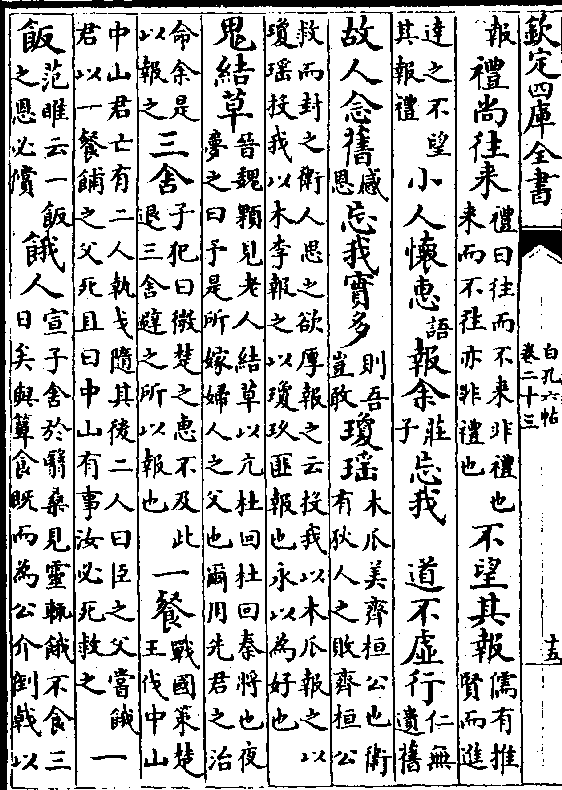 欽定四庫全書
白孔六帖
卷二十三
十五
報 禮尚往来 禮曰往而不来非禮也来而不往亦非禮也 不望其報 儒有推賢而進
達之不望其報禮 小人懷惠 語 報余 莊子 忘我 道不虚行 仁無遺舊
故人念舊 感恩 忘我實多 則吾豈敢 瓊瑶 木瓜美齊桓公也衞有狄人之敗齊桓公
救而封之衞人思之欲厚報之云投我以木瓜報之以瓊瑶投我以木李報之以瓊玖匪報也永以為好也
鬼結草 晉魏顆見老人結草以亢杜回杜回秦將也夜夢之曰予是所嫁婦人之父也爾用先君之治
命余是以報之 三舍 子犯曰微楚之惠不及此退三舍避之所以報也 一餐 戰國策楚王伐中山
中山君亡有二人執戈隨其後二人曰臣之父當餓君以一餐餔之父死且曰中山有事汝必死救之 一
飯 范睢云一飯之恩必償 餓人 宣子舍於翳桑見靈輒餓不食三日矣與簞食既而為公介倒戟以